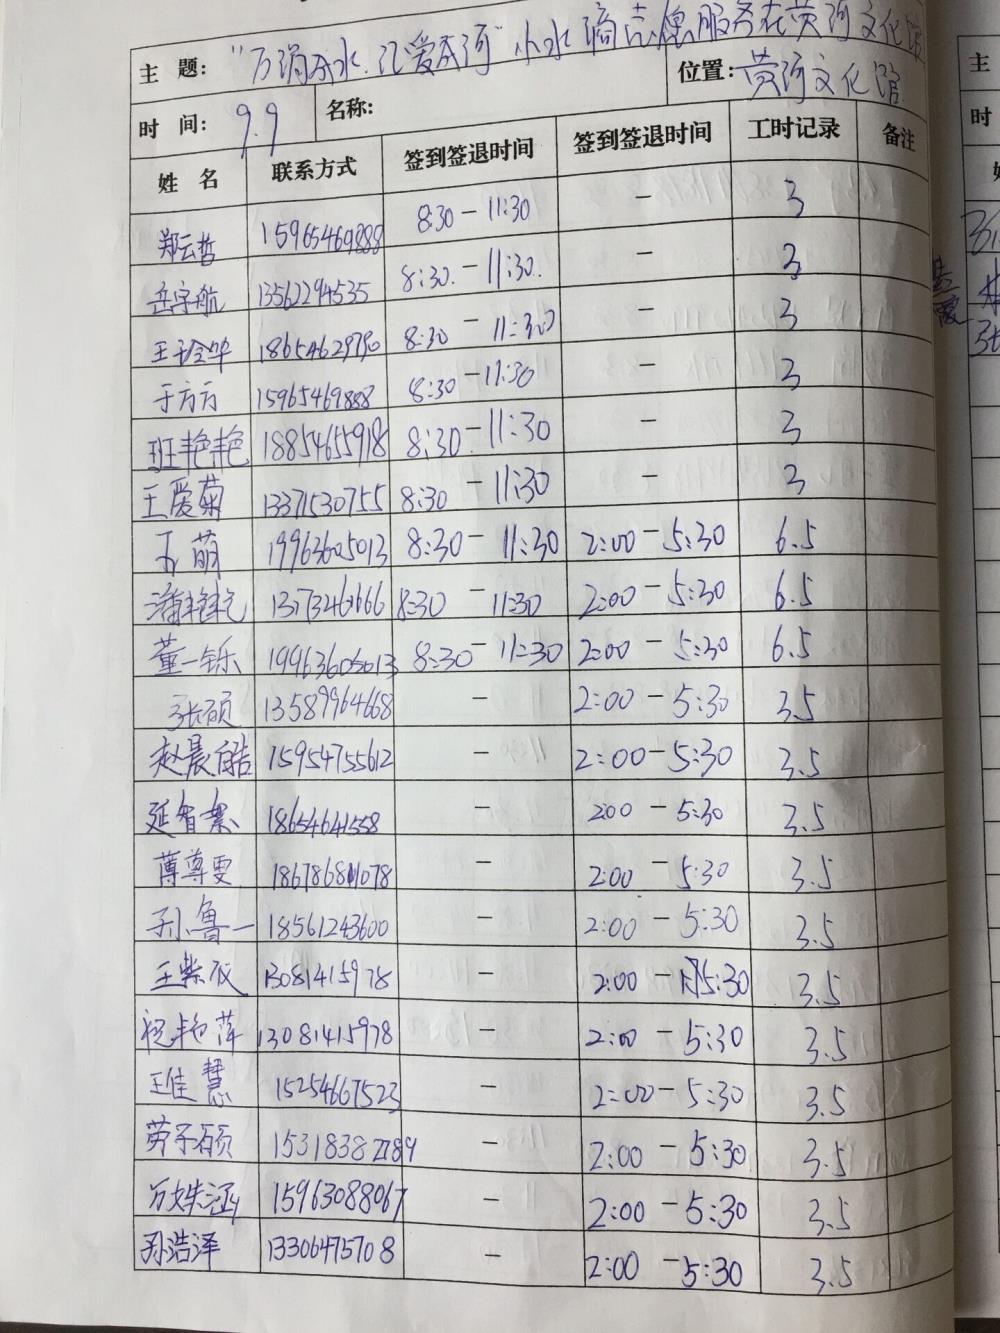 主 题: "万涓成水.汇爱成河"小水滴志愿服务在黄河文化馆
时 间: 9.9 名称: 位置: 黄河文化馆
姓 名 联系方式 签到签退时间 签到签退时间 工时记录 备注
郑云哲 15965469888 8:30 - 11:30 - 3
岳宇航 13562294535 8:30. - 11:30. - 3
18654629790 8:30 - 11:30 - 3
于方方 15965469888 8:30 - 11:30 - 3
班艳艳 18854655918 8:30 - 11:30 - 3
王爱菊 13371530755 8:30 - 11:30 - 3
萌 19963605013 8:30 - 11:30 2:00 - 5:30 6.5
潘艳艳 8:30 - 11:30 2:00 - 5:30 6.5
董一铄 19963605013 8:30 - 11:30 2:00 - 5:30 6.5
张硕 13589964668 - 2:00 - 5:30 3.5
赵晨皓 15954755612 - 2:00 - 5:30 3.5
延智 18654641558 - 200 - 5:30 3.5
薄尊雯 - 2:00 - 5:30 3.5
孙鲁一 18561243600 - 2:00 - 5:30 3.5
王紫 13081415978 - 2:00 - 5:30 3.5
祝艳萍 13081415978 - 2:00 - 5:30 3.5
王佳慧 15254667523 - 2:00 - 5:30 3.5
劳子硕 - 2:00 - 5:30 3.5
万姝涵 15963088067 - 2:00 - 5:30 3.5
孙浩泽 13306475708 - 2:00 - 5:30 3.5
主
时